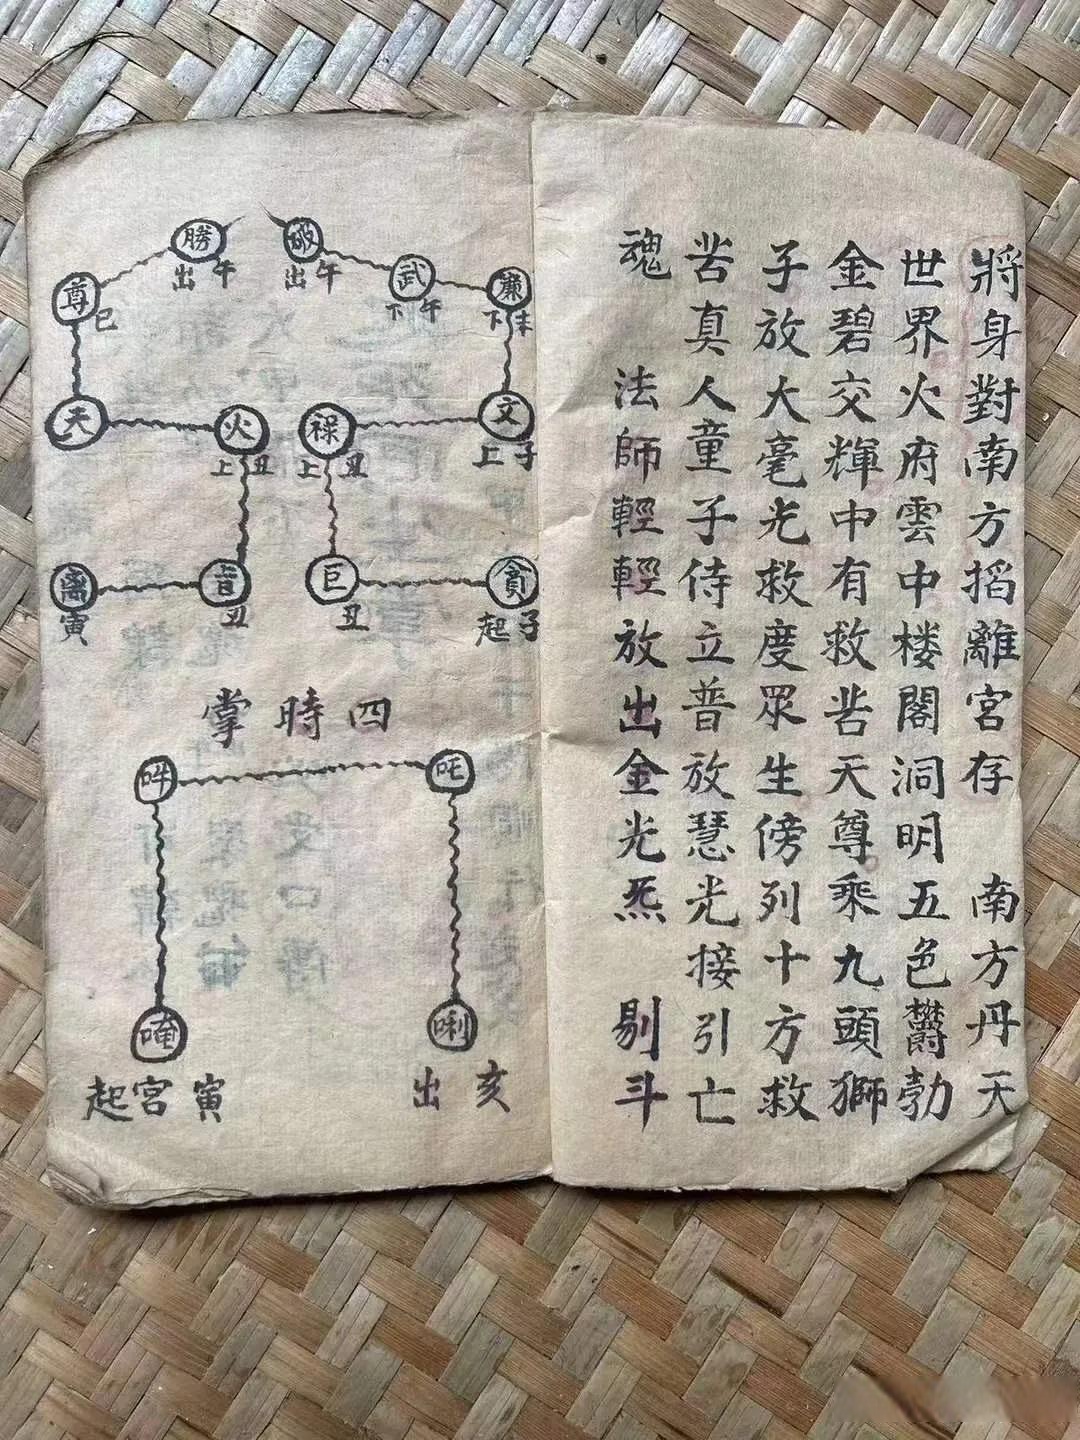 將身對南方掐離宮存 南方丹天
世界火府雲中楼閣洞明五色欝勃
金碧交輝中有救苦天尊乘九頭獅
子放大毫光救度眾生傍列十方救
苦真人童子侍立普放慧光接引亡
魂 法師輕輕放出金光炁 剔斗
破 勝
出午 出午
武 尊
下午 巳
廉
下未
文 祿 火 天
上子 上丑 上丑
貪 巨 音 離
起子 丑 丑 寅
四時掌
吽 吒
唵 唎
寅宮起 亥出